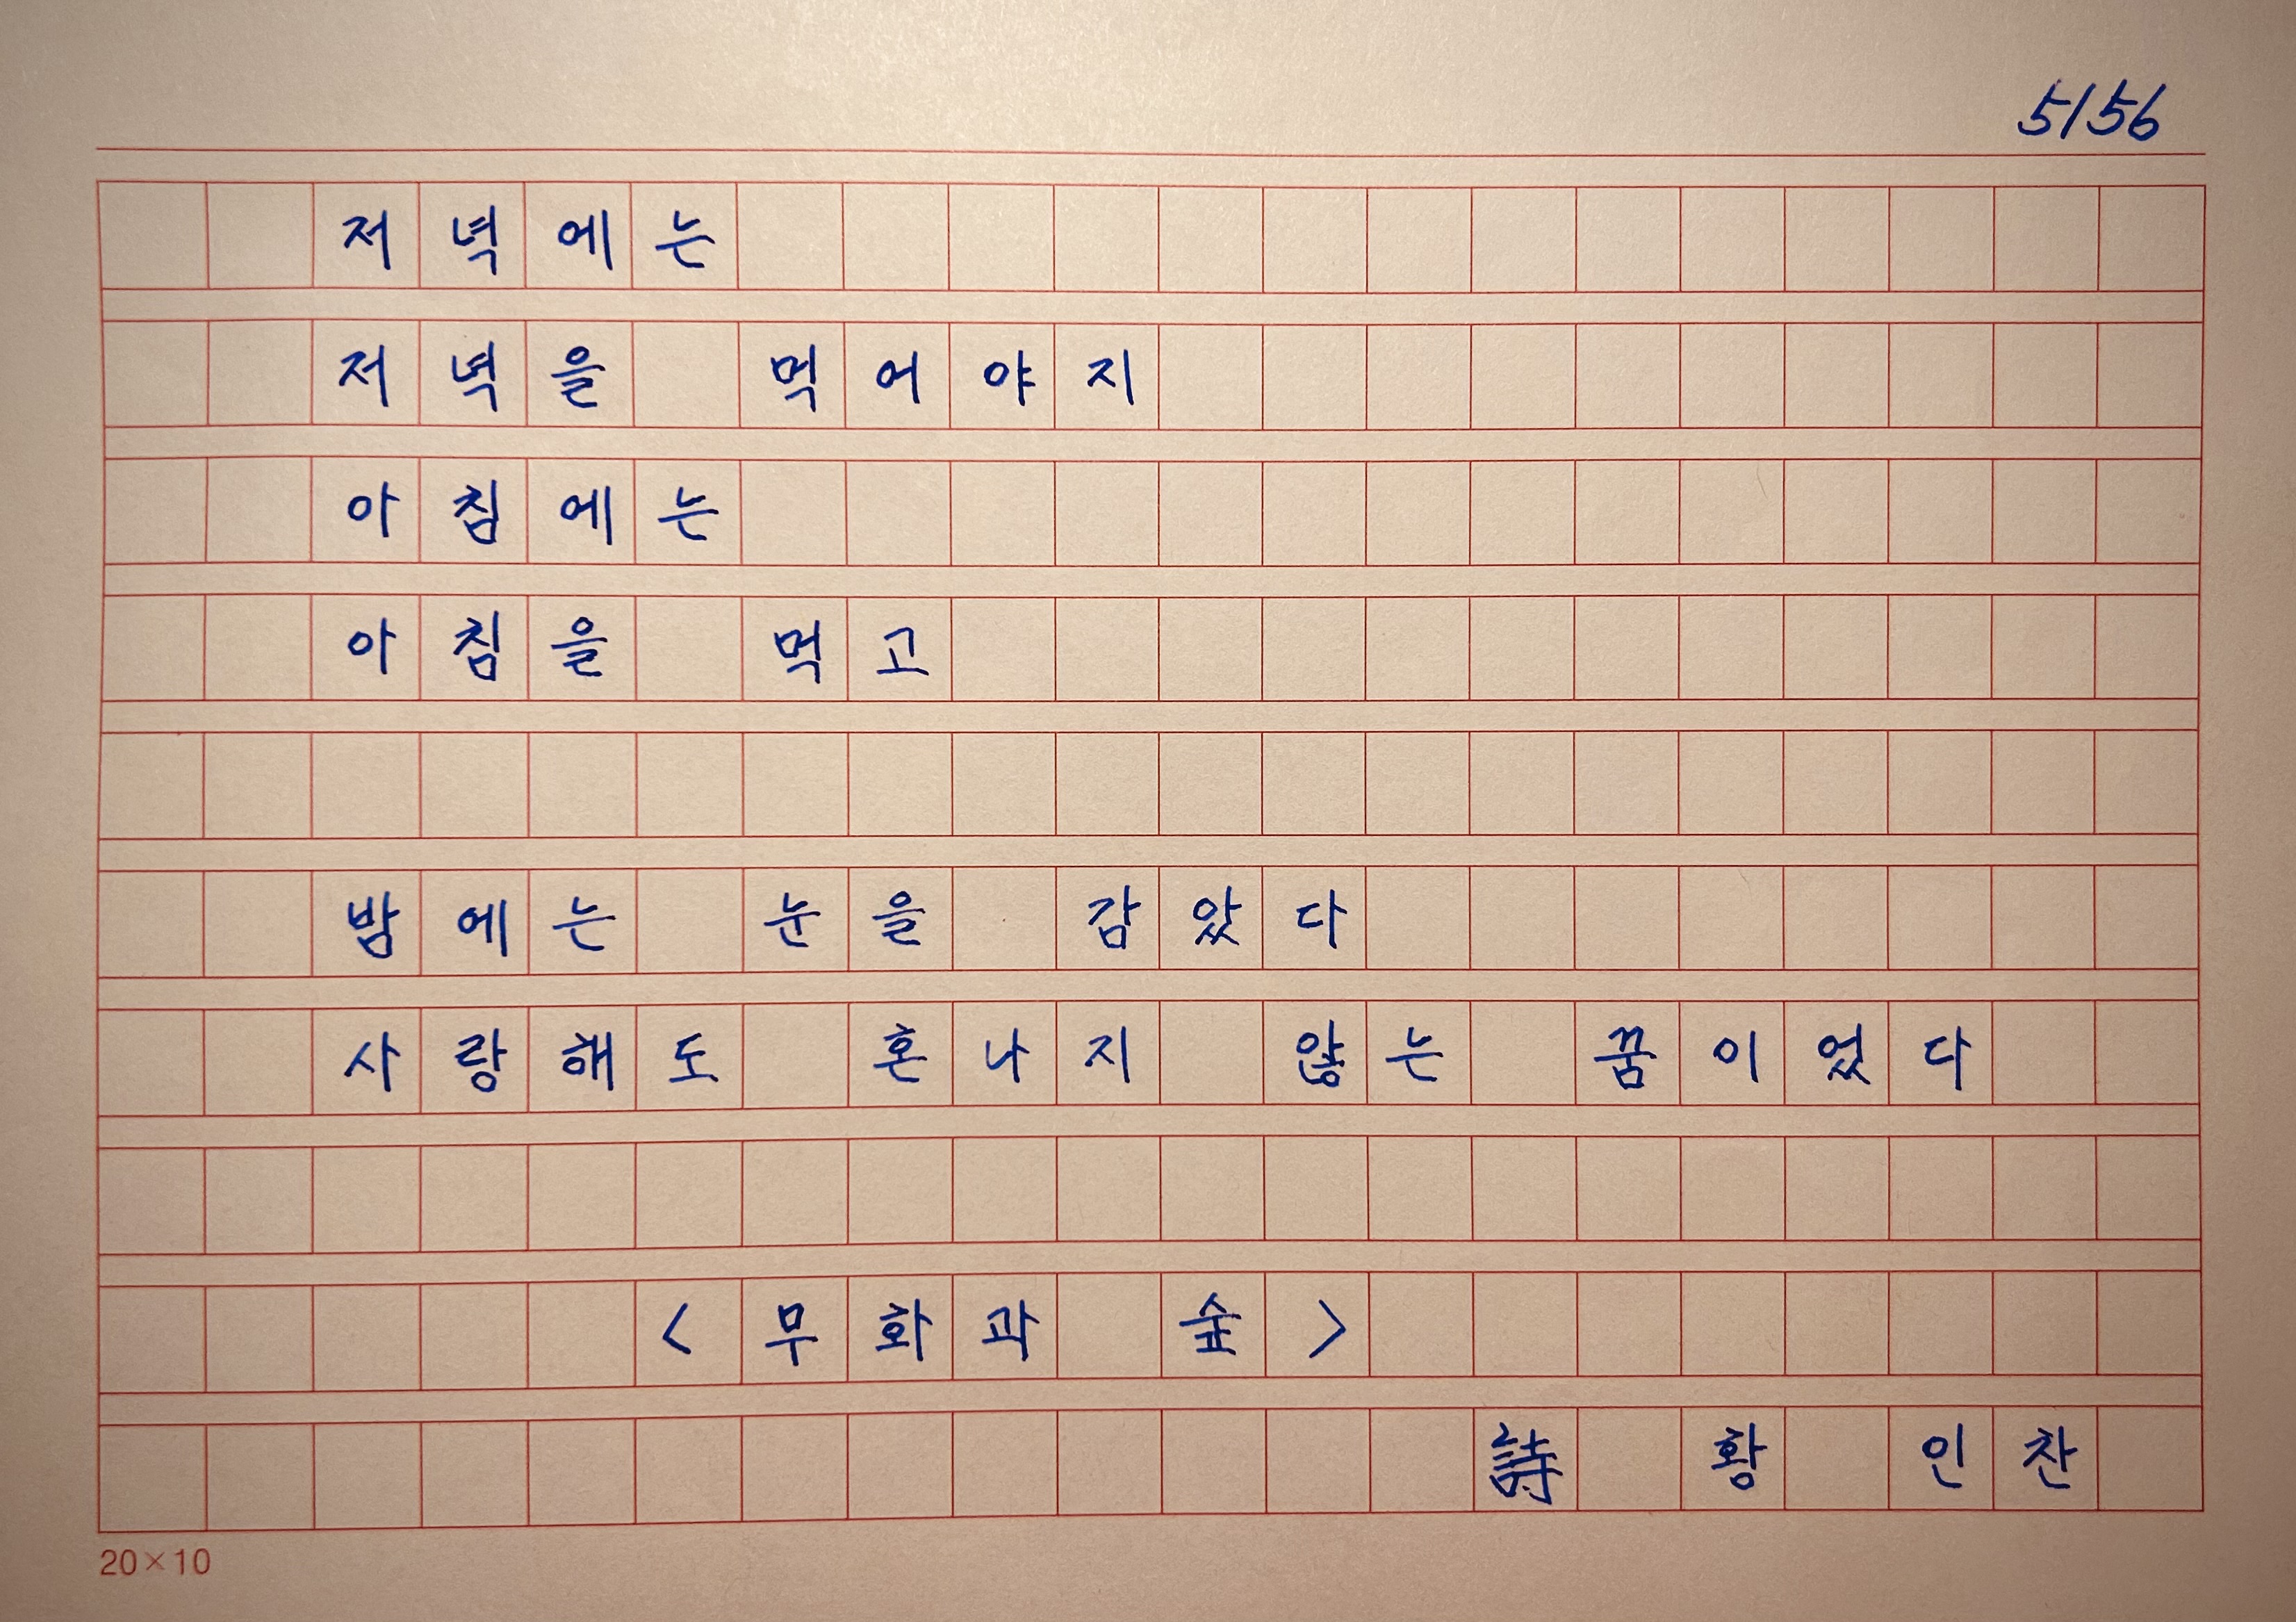 5156
저녁에는
저녁을 먹어야지
아침에는
아침을 먹고
밤에는 눈을 감았다
사랑해도 혼나지 않는 꿈이었다
<무화과 숲>
詩 황 인찬
20×10